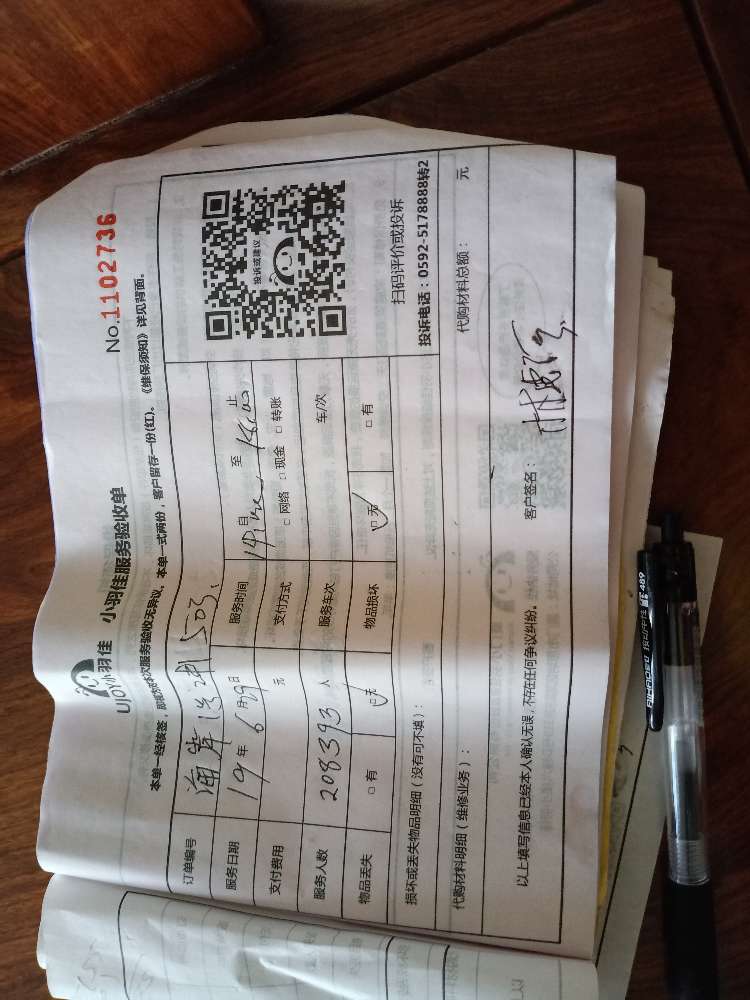 UJOY小羽佳 小羽佳服务验收单
No.1102736
本单一经核签，即视为对本次服务验收无异议，本单一式两份，客户留存一份(红)。《维保须知》详见背面。
订单编号 503
服务日期 19年6月29日 服务时间 自 至 止
支付费用 元 支付方式 □网络 □现金 □转账
服务人数 208393 人 服务车次 车/次
物品丢失 □有 □无 物品损坏 □无 □有
投诉或建议
扫码评价或投诉
投诉电话：0592-5178888转2
损坏或丢失物品明细（没有可不填）：
代购材料明细（维修业务）： 代购材料总额： 元
以上填写信息已经本人确认无误，不存在任何争议纠纷。 客户签名：